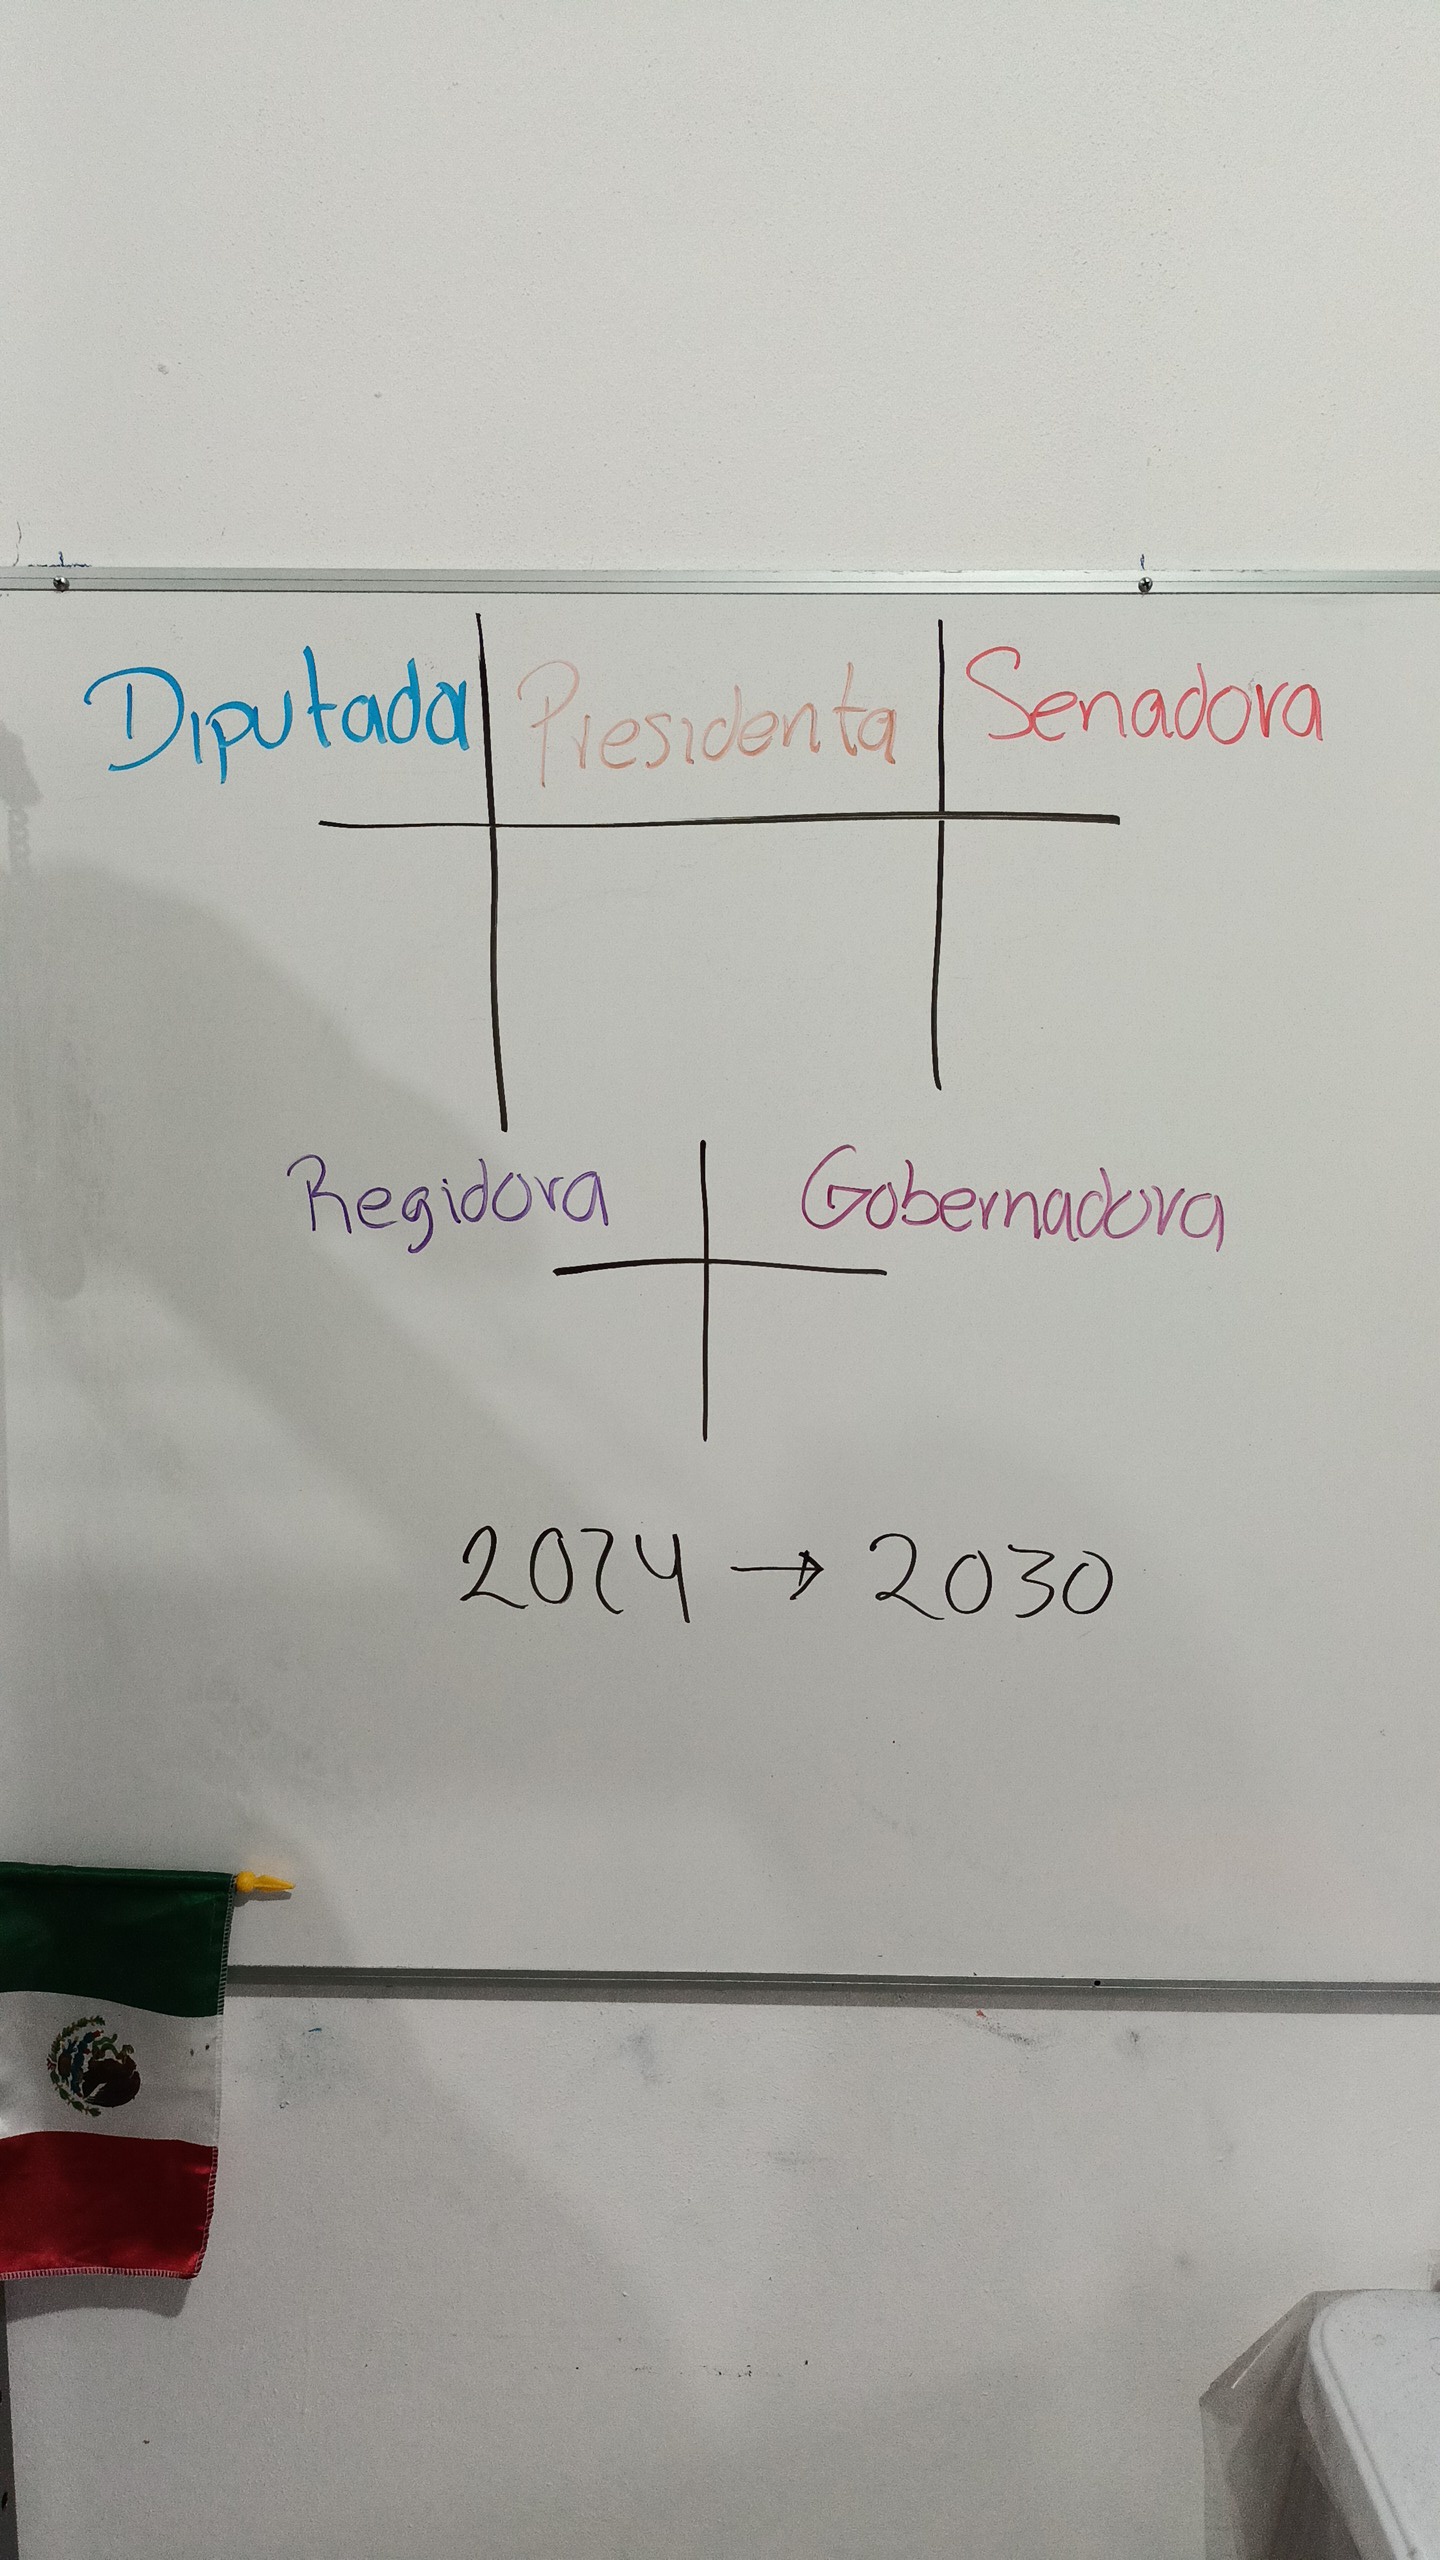 Diputada Presidenta Senadora
Regidora Gobernadora
2024 → 2030